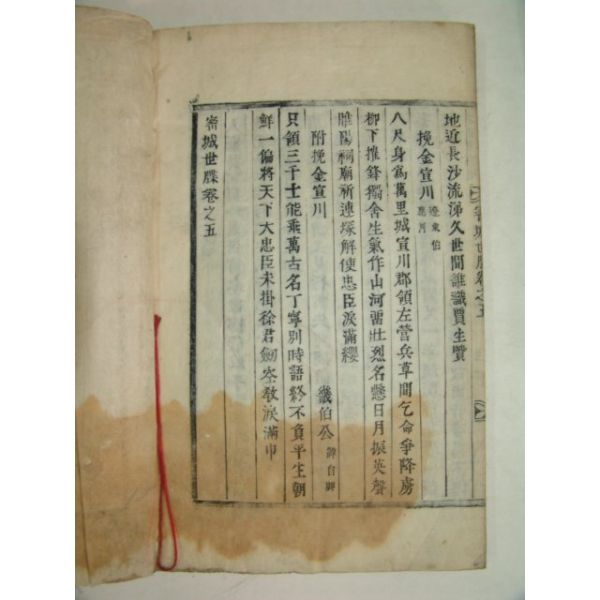 地近長沙流涕久世間誰識賈生賢
挽金宣川 遼東伯
應月
八尺身爲萬里城宣川郡領左營兵草間乞命爭降虜
柳下摧鋒獨舍生氣作山河當壯烈名懸日月振英聲
睢陽祠廟祈連塚解使忠臣淚滿纓
附挽金宣川 幾伯公
只領三千士能乘萬古名丁寧別時語終不負半生朝
鮮一偏將天下大忠臣未掛徐君劒空敎淚滿巾
密城世牒卷之五
密城世牒卷之五